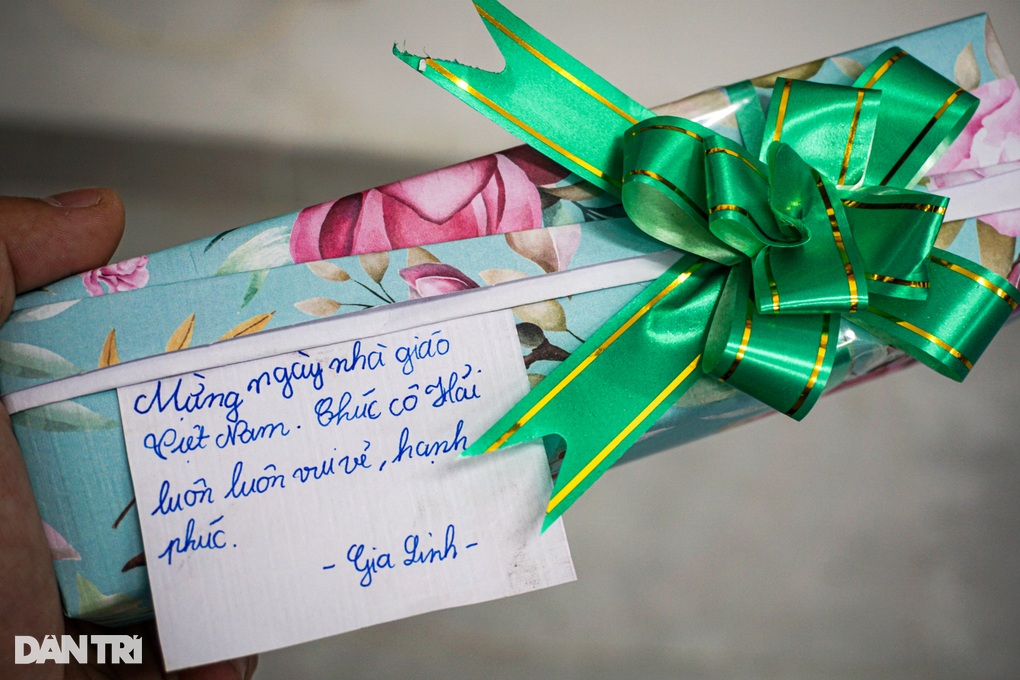 Mừng ngày nhà giáo
Việt Nam. Chúc cô Hải
luôn luôn vui vẻ, hạnh
phúc.
- Gia Linh -
DÂN TRÍ